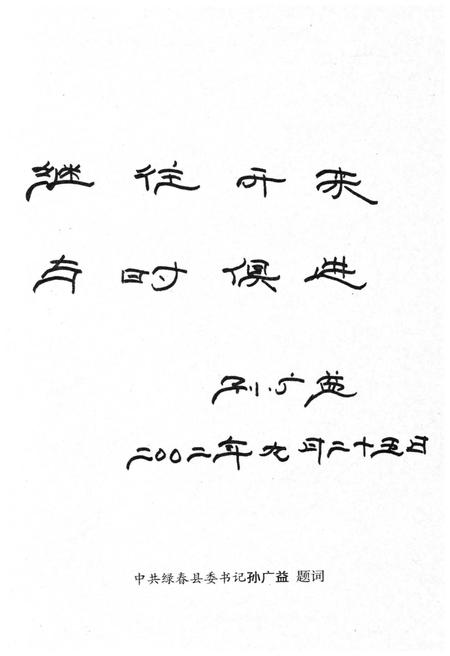 继往开来
与时俱进
孙广益
二〇〇二年九月二十五日
中共绿春县委书记孙广益 题词